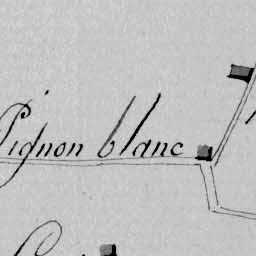 Pignon blanc